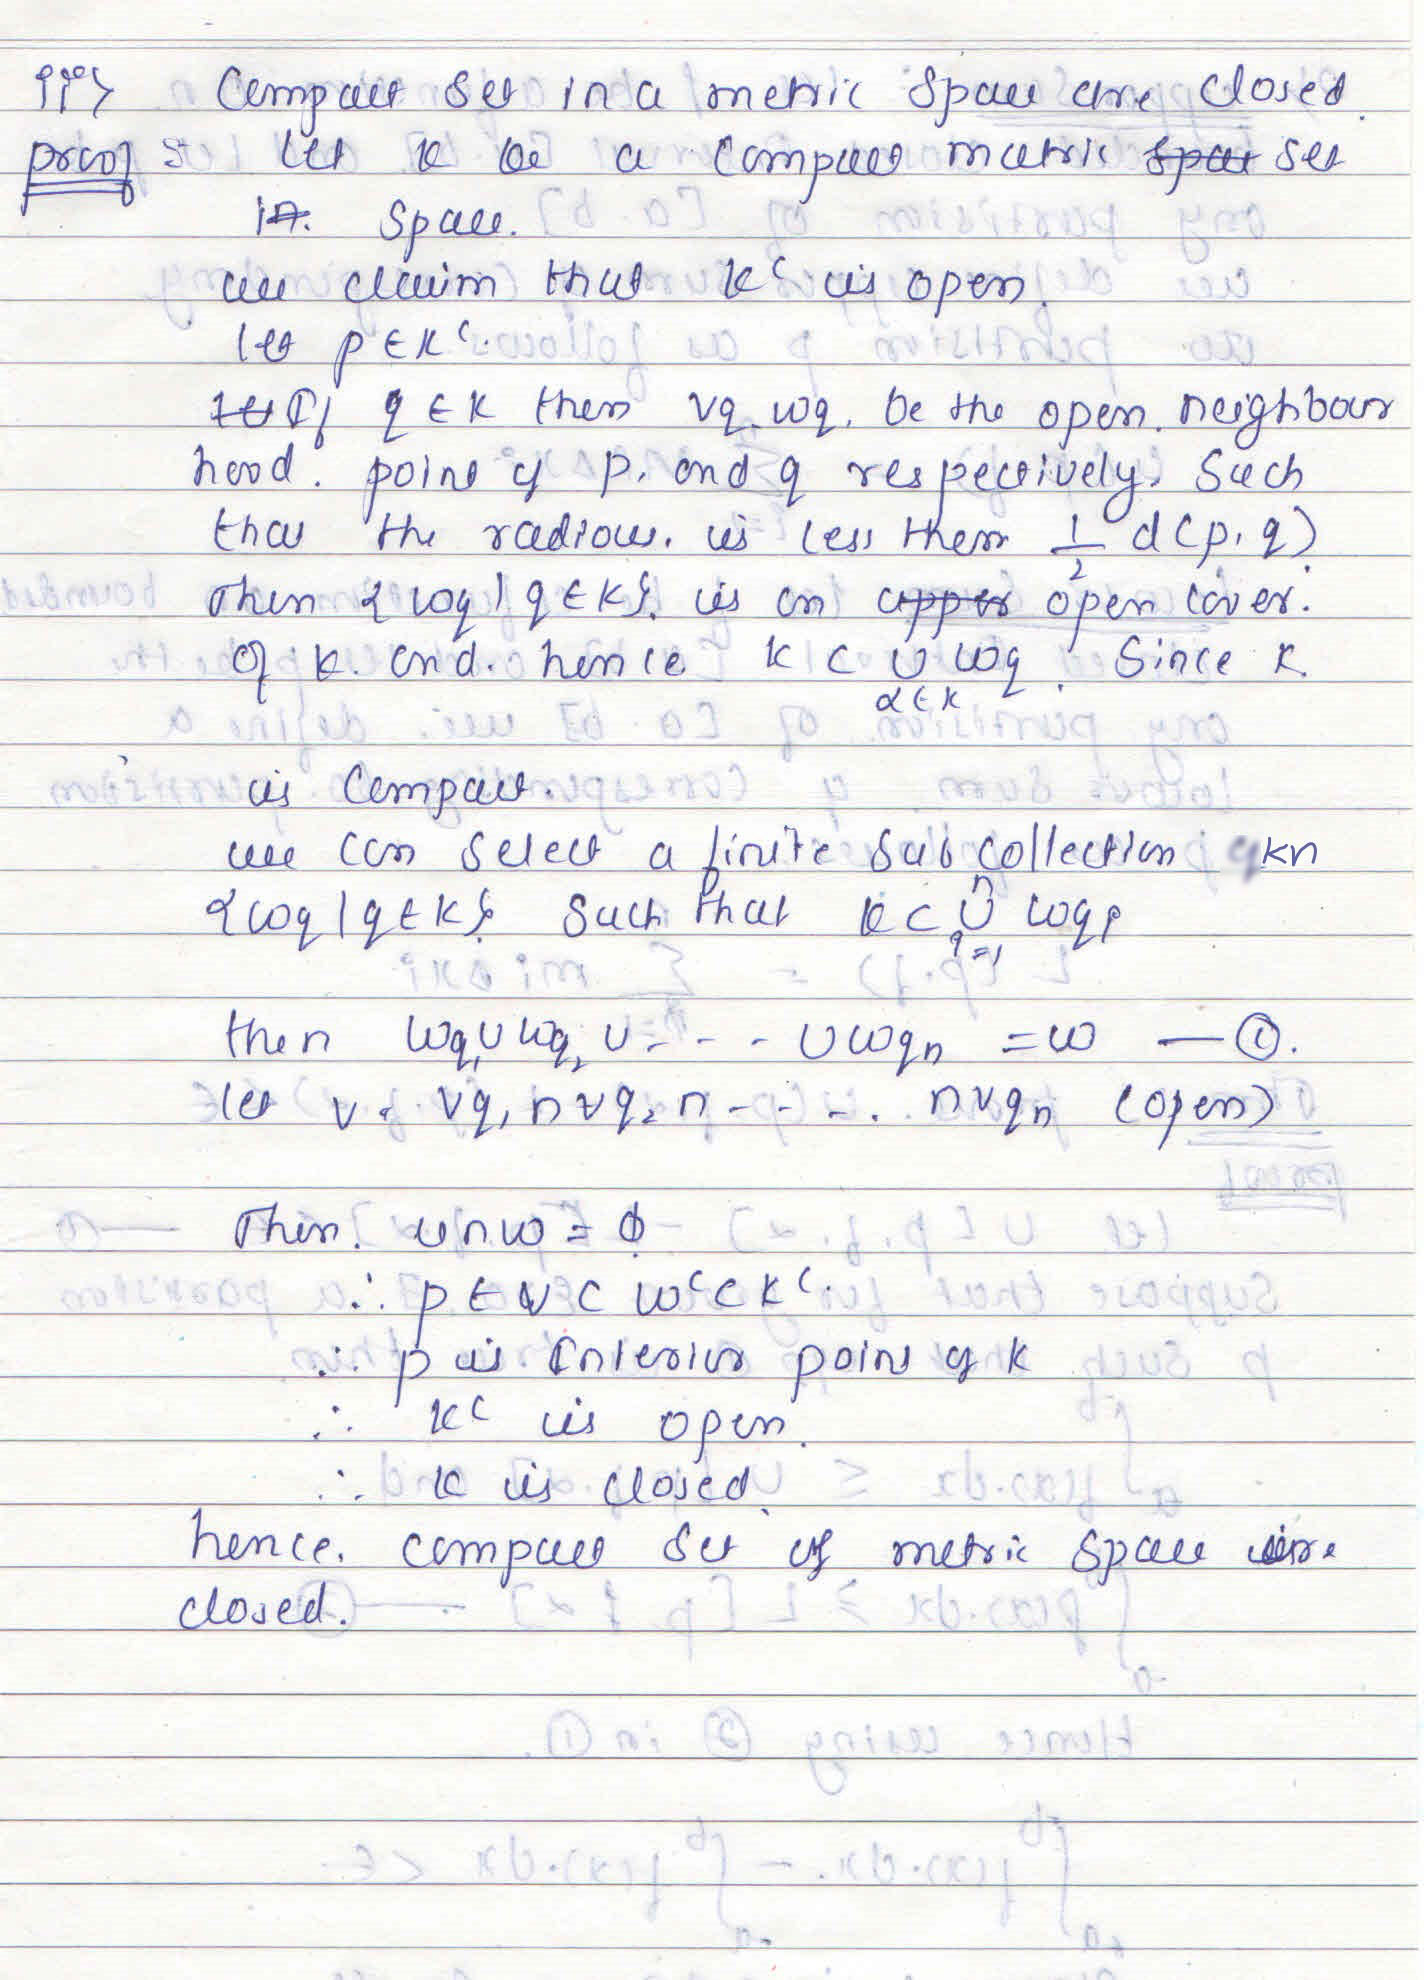 iii> Compact set in a metric space are closed.
proof :- let K be a compact metric space set
in. space.
we claim that K^c is open.
let p ∈ K^c.
let If q ∈ K then Vq, Wq, be the open neighbour
hood. point of p, and q respectively. Such
that the radious. is less then 1/2 d(p, q)
Then {Wq | q ∈ K}. is an upper open cover.
Of K. and. hence K ⊂ ∪ Wq. Since K.
α ∈ K
is Compact.
we can select a finite sub collection kn
{Wq | q ∈ K}. Such that K ⊂ n∪i=1 Wqi
then Wq1 ∪ Wq2 ∪ - - - ∪ Wqn = W — ①.
let V = Vq1 ∩ Vq2 ∩ - - - . ∩ Vqn (open)
Then. V ∩ W = ϕ
∴ p ∈ V ⊂ W^c ⊂ K^c.
∴ p is Interior point of K
∴ K^c is open.
∴ K is closed.
hence. compact set of metric space are.
closed.